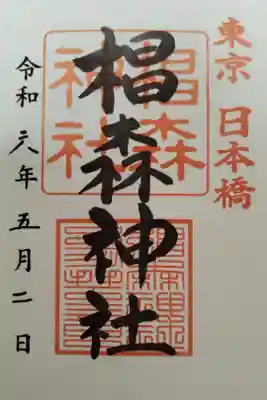 東京 日本橋
椙森神社
椙森神社
令和六年五月二日